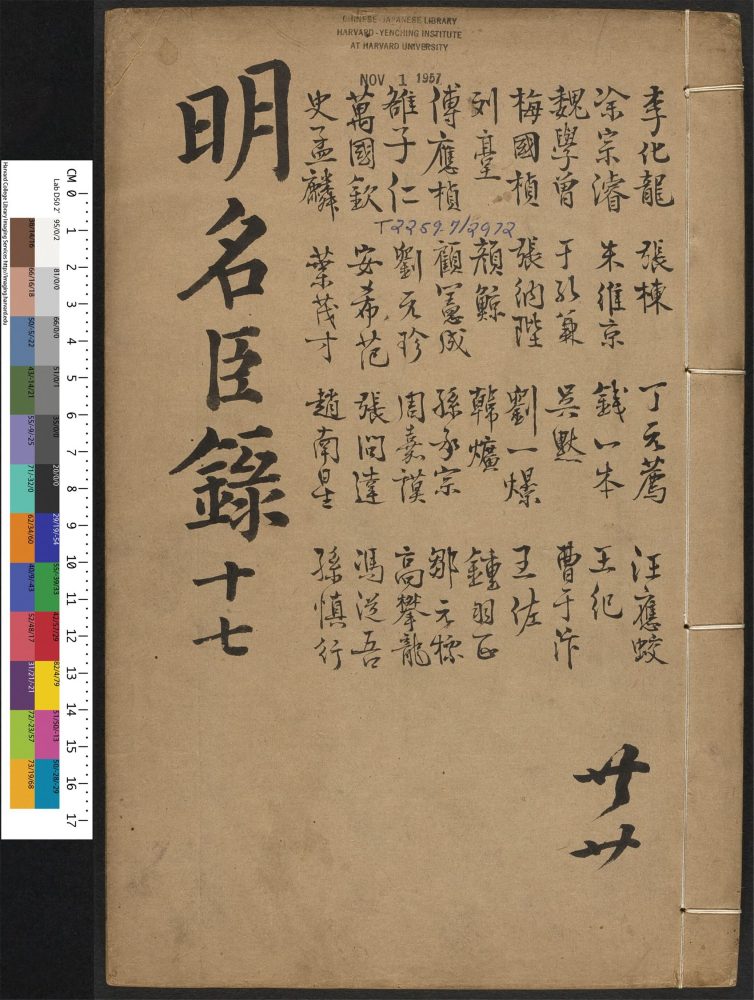 CHINESE-JAPANESE LIBRARY
HARVARD-YENCHING INSTITUTE
AT HARVARD UNIVERSITY
NOV 1 1957
李化龍 張棟 丁元薦 汪應蛟
凃宗濬 朱維京 錢一本 王紀
魏學曾 于孔兼 吳默 曹于汴
梅國楨 張納陛 劉一燝 王佐
刘臺 顏鯨 韓爌 鍾羽正
傅應楨 顧憲成 孫承宗 鄒元標
雒子仁 劉元珍 周嘉謨 高攀龍
萬國欽 安希范 張問達 馮從吾
史孟麟 葉茂才 趙南星 孫慎行
T2259.7/2972
明名臣錄十七
廿廿
CM 0 1 2 3 4 5 6 7 8 9 10 11 12 13 14 15 16 17
Lab D50 2°
Harvard College Library Imaging Services